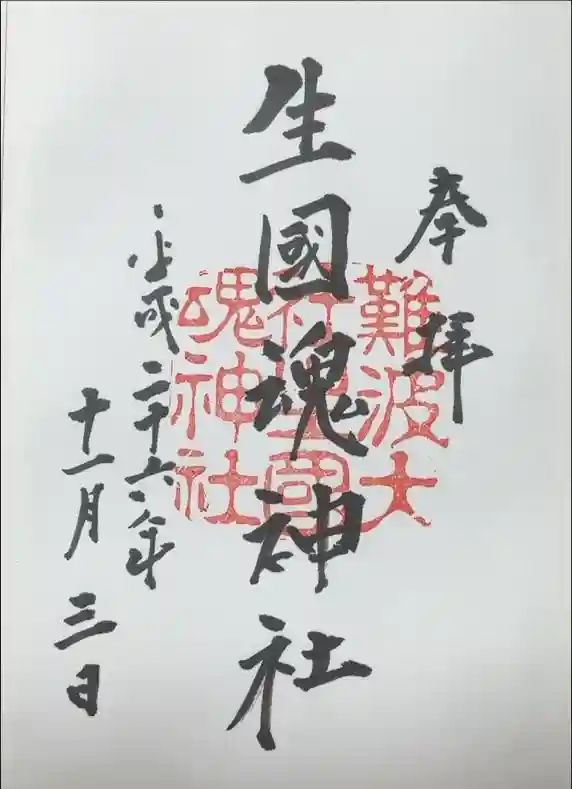 奉拝
生國魂神社
難波大
行生國
魂神社
平成二十六年
十一月三日